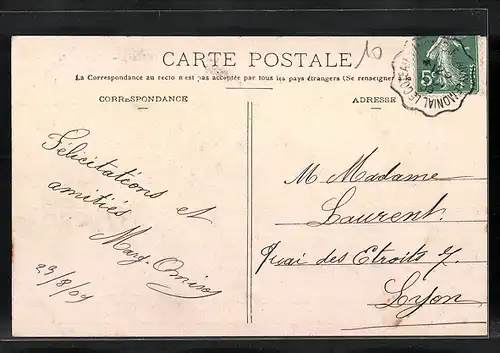 CARTE POSTALE
10
La Correspondance au recto n'est pas acceptée par tous les pays étrangers (Se renseigner à la
CORRESPONDANCE
ADRESSE
5c
MONIAL LE COTEAU
Félicitations et
amitiés
Marg.
23/8/09
M Madame
Laurent.
Quai des Etroits 7.
Lyon